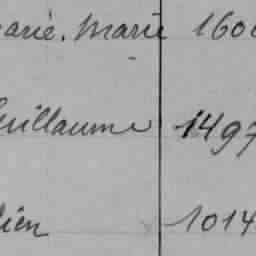 arie. Marie 1600
Guillaume 1497
lien 1014